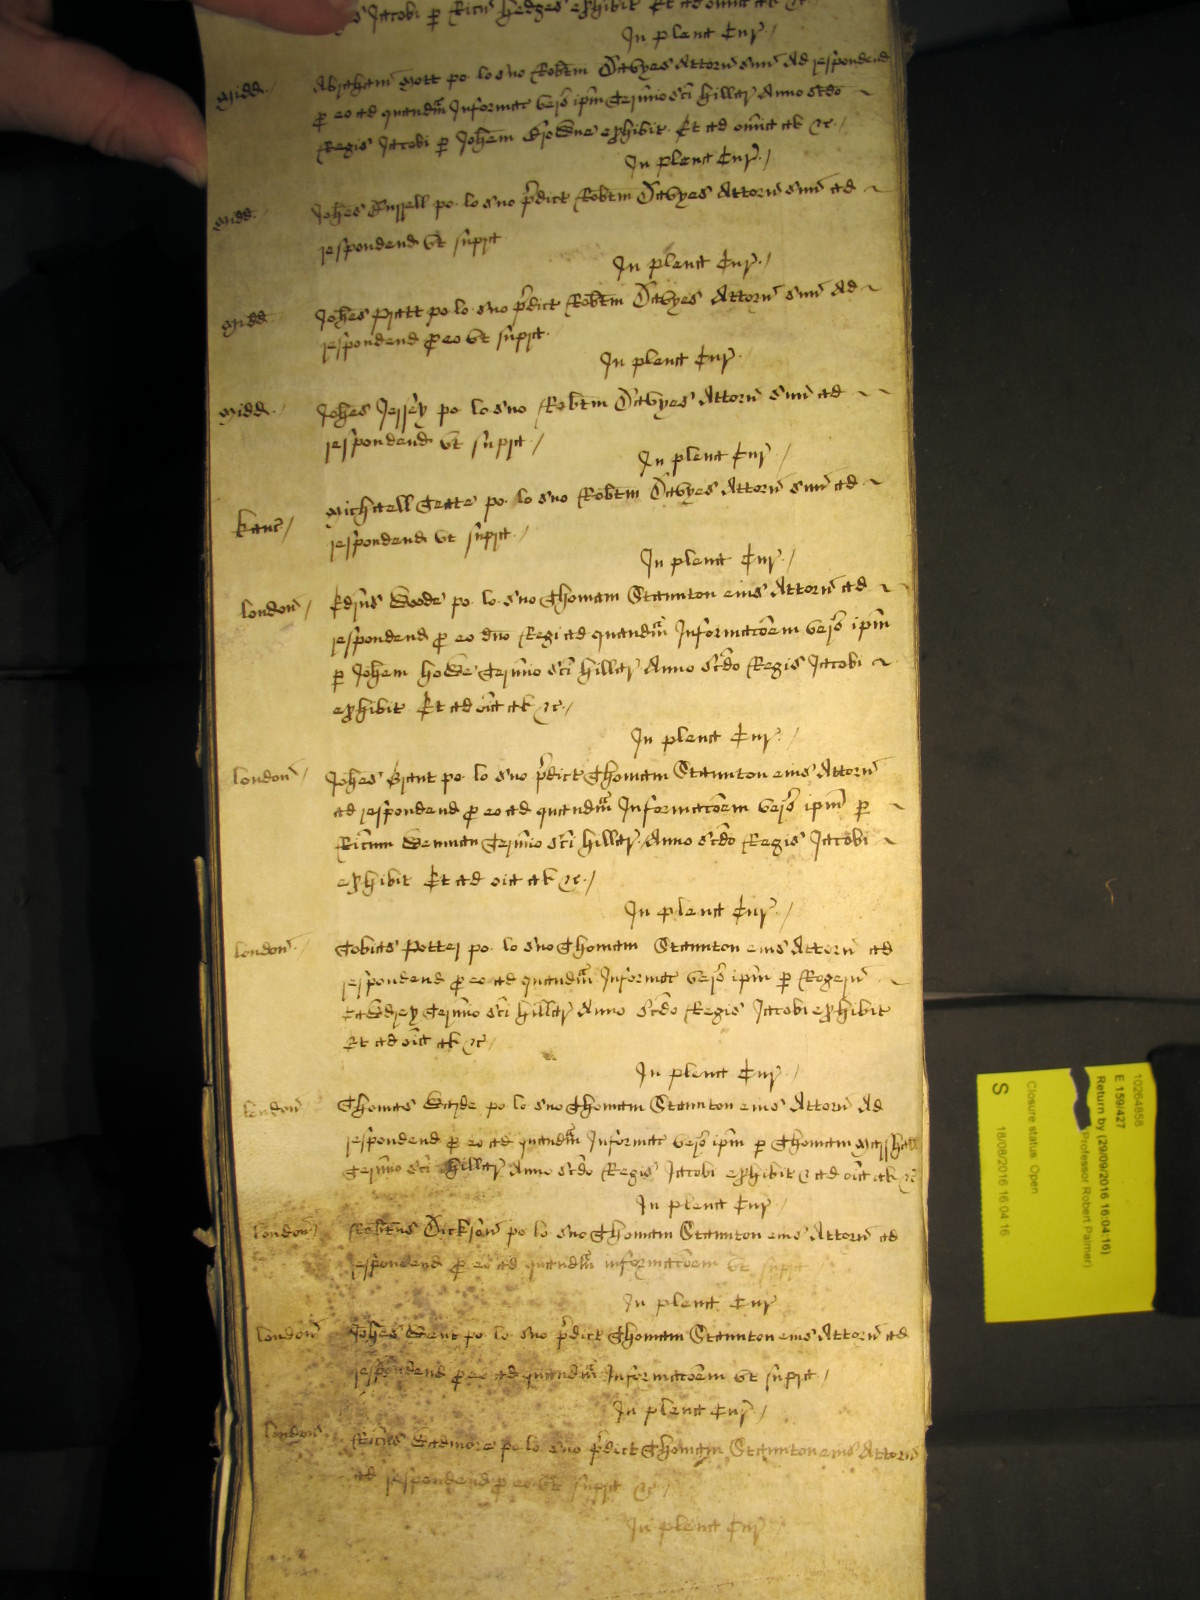 s Jacobi p Ricm hedges exhibit Et ad omia al &c
In plena Cur
Midd Abraham Mott po lo suo Robtm Davyes Attorn suu Ad respondend
p eo ad quandm Informac vers ipm Termino sci hillar Anno scdo
Regis Jacobi p Johem Browne exhibit Et ad omia al &c
In plena Cur
Midd Johes Russell po lo suo pdict Robtm Davyes Attorn suu ad
respondend vt supra
In plena Cur
Midd Johes Pratt po lo suo pdict Robtm Davyes Attorn suu Ad
respondend p eo vt supra
In plena Cur
Midd Johes Jersey po lo suo Robtm Davyes Attorn suu ad
respondend vt supra
In plena Cur
Kanc Michaell Geate po lo suo Robtm Davyes Attorn suu ad
respondend vt supra
In plena Cur
London Edrus Woode po lo suo Thomam Staunton eius Attorn ad
respondend p eo dno Regi ad quandm Informacoem vers ipm
p Johem Howe Termino sci hillar Anno scdo Regis Jacobi
exhibit Et ad oia al &c
In plena Cur
London Johes Grant po lo suo pdict Thomam Staunton eius Attorn
ad respondend p eo ad quandm Informacoem vers ipm p
Ricum Wenman Termino sci hillar Anno scdo Regis Jacobi
exhibit Et ad oia al &c
In plena Cur
London Tobias Potter po lo suo Thomam Staunton eius Attorn ad
respondend p eo ad quandm Informac vers ipm p Rogerum
Cawdrey Termino sci hillar Anno scdo Regis Jacobi exhibit
Et ad oia al &c
In plena Cur
London Thomas Wayde po lo suo Thomam Staunton eius Attorn Ad
respondend p eo ad quandm Informac vers ipm p Thomam Marshall
Termino sci hillar Anno scdo Regis Jacobi exhibit & ad oia al &c
In plena Cur
London Robtus Dickson po lo suo Thomam Staunton eius Attorn ad
respondend p eo ad quandm informacoem vt supra
In plena Cur
London Johes Went po lo suo pdict Thomam Staunton eius Attorn ad
respondend p eo ad quandm Informacoem vt supra
In plena Cur
London Ricus Wadmore po lo suo pdict Thomam Staunton eius Attorn
ad respondend p eo vt supra &c
In plena Cur
10264858
E 159/427
Return by (29/09/2016 16:04:16)
Professor Robert Palmer)
Closure status: Open
18/08/2016 16:04:16
S